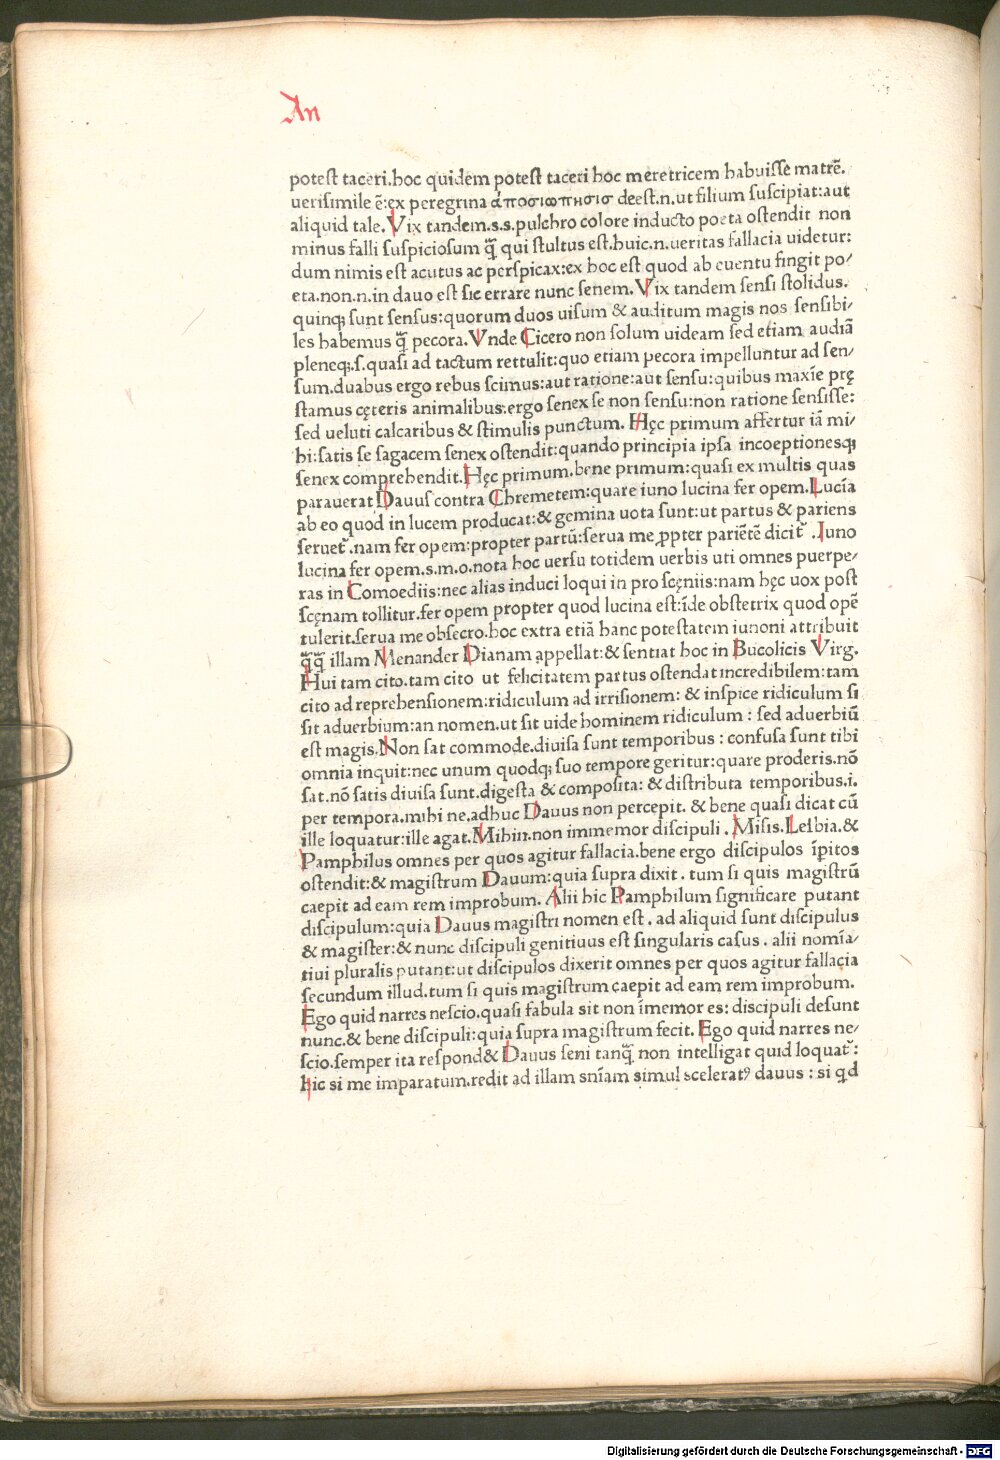 An
potest taceri.hoc quidem potest taceri hoc meretricem habuisse matrē.
uerisimile ē:ex peregrina ἀποσιωπησισ deest.n.ut filium suscipiat:aut
aliquid tale.Vix tandem.s.s.pulchro colore inducto poeta ostendit non
minus falli suspiciosum q̃ qui stultus est.huic.n.ueritas fallacia uidetur:
dum nimis est acutus ac perspicax:ex hoc est quod ab euentu fingit po/
eta.non.n.in dauo est sic errare nunc senem.Vix tandem sensi stolidus.
quinq; sunt sensus:quorum duos uisum & auditum magis nos sensibi/
les habemus q̃ pecora.Vnde Cicero non solum uideam sed etiam audiā
pleneq;.s.quasi ad tactum rettulit:quo etiam pecora impelluntur ad sen/
sum.duabus ergo rebus scimus:aut ratione:aut sensu:quibus maxīe prę
stamus cęteris animalibus:ergo senex se non sensu:non ratione sensisse:
sed ueluti calcaribus & stimulis punctum. Hęc primum affertur iā mi/
hi:satis se sagacem senex ostendit:quando principia ipsa incoeptionesq;
senex comprehendit.Hęc primum.bene primum:quasi ex multis quas
parauerat Dauus contra Chremetem:quare iuno lucina fer opem.Lucīa
ab eo quod in lucem producat:& gemina uota sunt:ut partus & pariens
seruet᷑.nam fer opem:propter partū:serua me ꝓpter pariētē dicit᷑ .Iuno
lucina fer opem.s.m.o.nota hoc uersu totidem uerbis uti omnes puerpe/
ras in Comoediis:nec alias induci loqui in pro scęniis:nam hęc uox post
scęnam tollitur.fer opem propter quod lucina est:īde obstetrix quod opē
tulerit.serua me obsecro.hoc extra etiā hanc potestatem iunoni attribuit
q̃q̃ illam Menander Dianam appellat:& sentiat hoc in Bucolicis Virg.
Hui tam cito.tam cito ut felicitatem partus ostendat incredibilem:tam
cito ad reprehensionem:ridiculum ad irrisionem: & inspice ridiculum si
sit aduerbium:an nomen.ut sit uide hominem ridiculum : sed aduerbiū
est magis.Non sat commode.diuisa sunt temporibus : confusa sunt tibi
omnia inquit:nec unum quodq; suo tempore geritur:quare proderis.nō
sat.nō satis diuisa sunt.digesta & composita: & distributa temporibus.i.
per tempora.mihi ne.adhuc Dauus non percepit. & bene quasi dicat cū
ille loquatur:ille agat.Mihin.non immemor discipuli . Misis.Lesbia.&
Pamphilus omnes per quos agitur fallacia.bene ergo discipulos īpitos
ostendit:& magistrum Dauum:quia supra dixit . tum si quis magistrū
caepit ad eam rem improbum. Alii hic Pamphilum significare putant
discipulum:quia Dauus magistri nomen est . ad aliquid sunt discipulus
& magister:& nunc discipuli genitiuus est singularis casus . alii nomīa/
tiui pluralis putant:ut discipulos dixerit omnes per quos agitur fallacia
secundum illud.tum si quis magistrum caepit ad eam rem improbum.
Ego quid narres nescio.quasi fabula sit non īmemor es: discipuli desunt
nunc.& bene discipuli:quia supra magistrum fecit. Ego quid narres ne/
scio.semper ita respond& Dauus seni tanq̃ non intelligat quid loquat᷑:
hic si me imparatum.redit ad illam snīam simul sceleratꝰ dauus : si qd
Digitalisierung gefördert durch die Deutsche Forschungsgemeinschaft - DFG